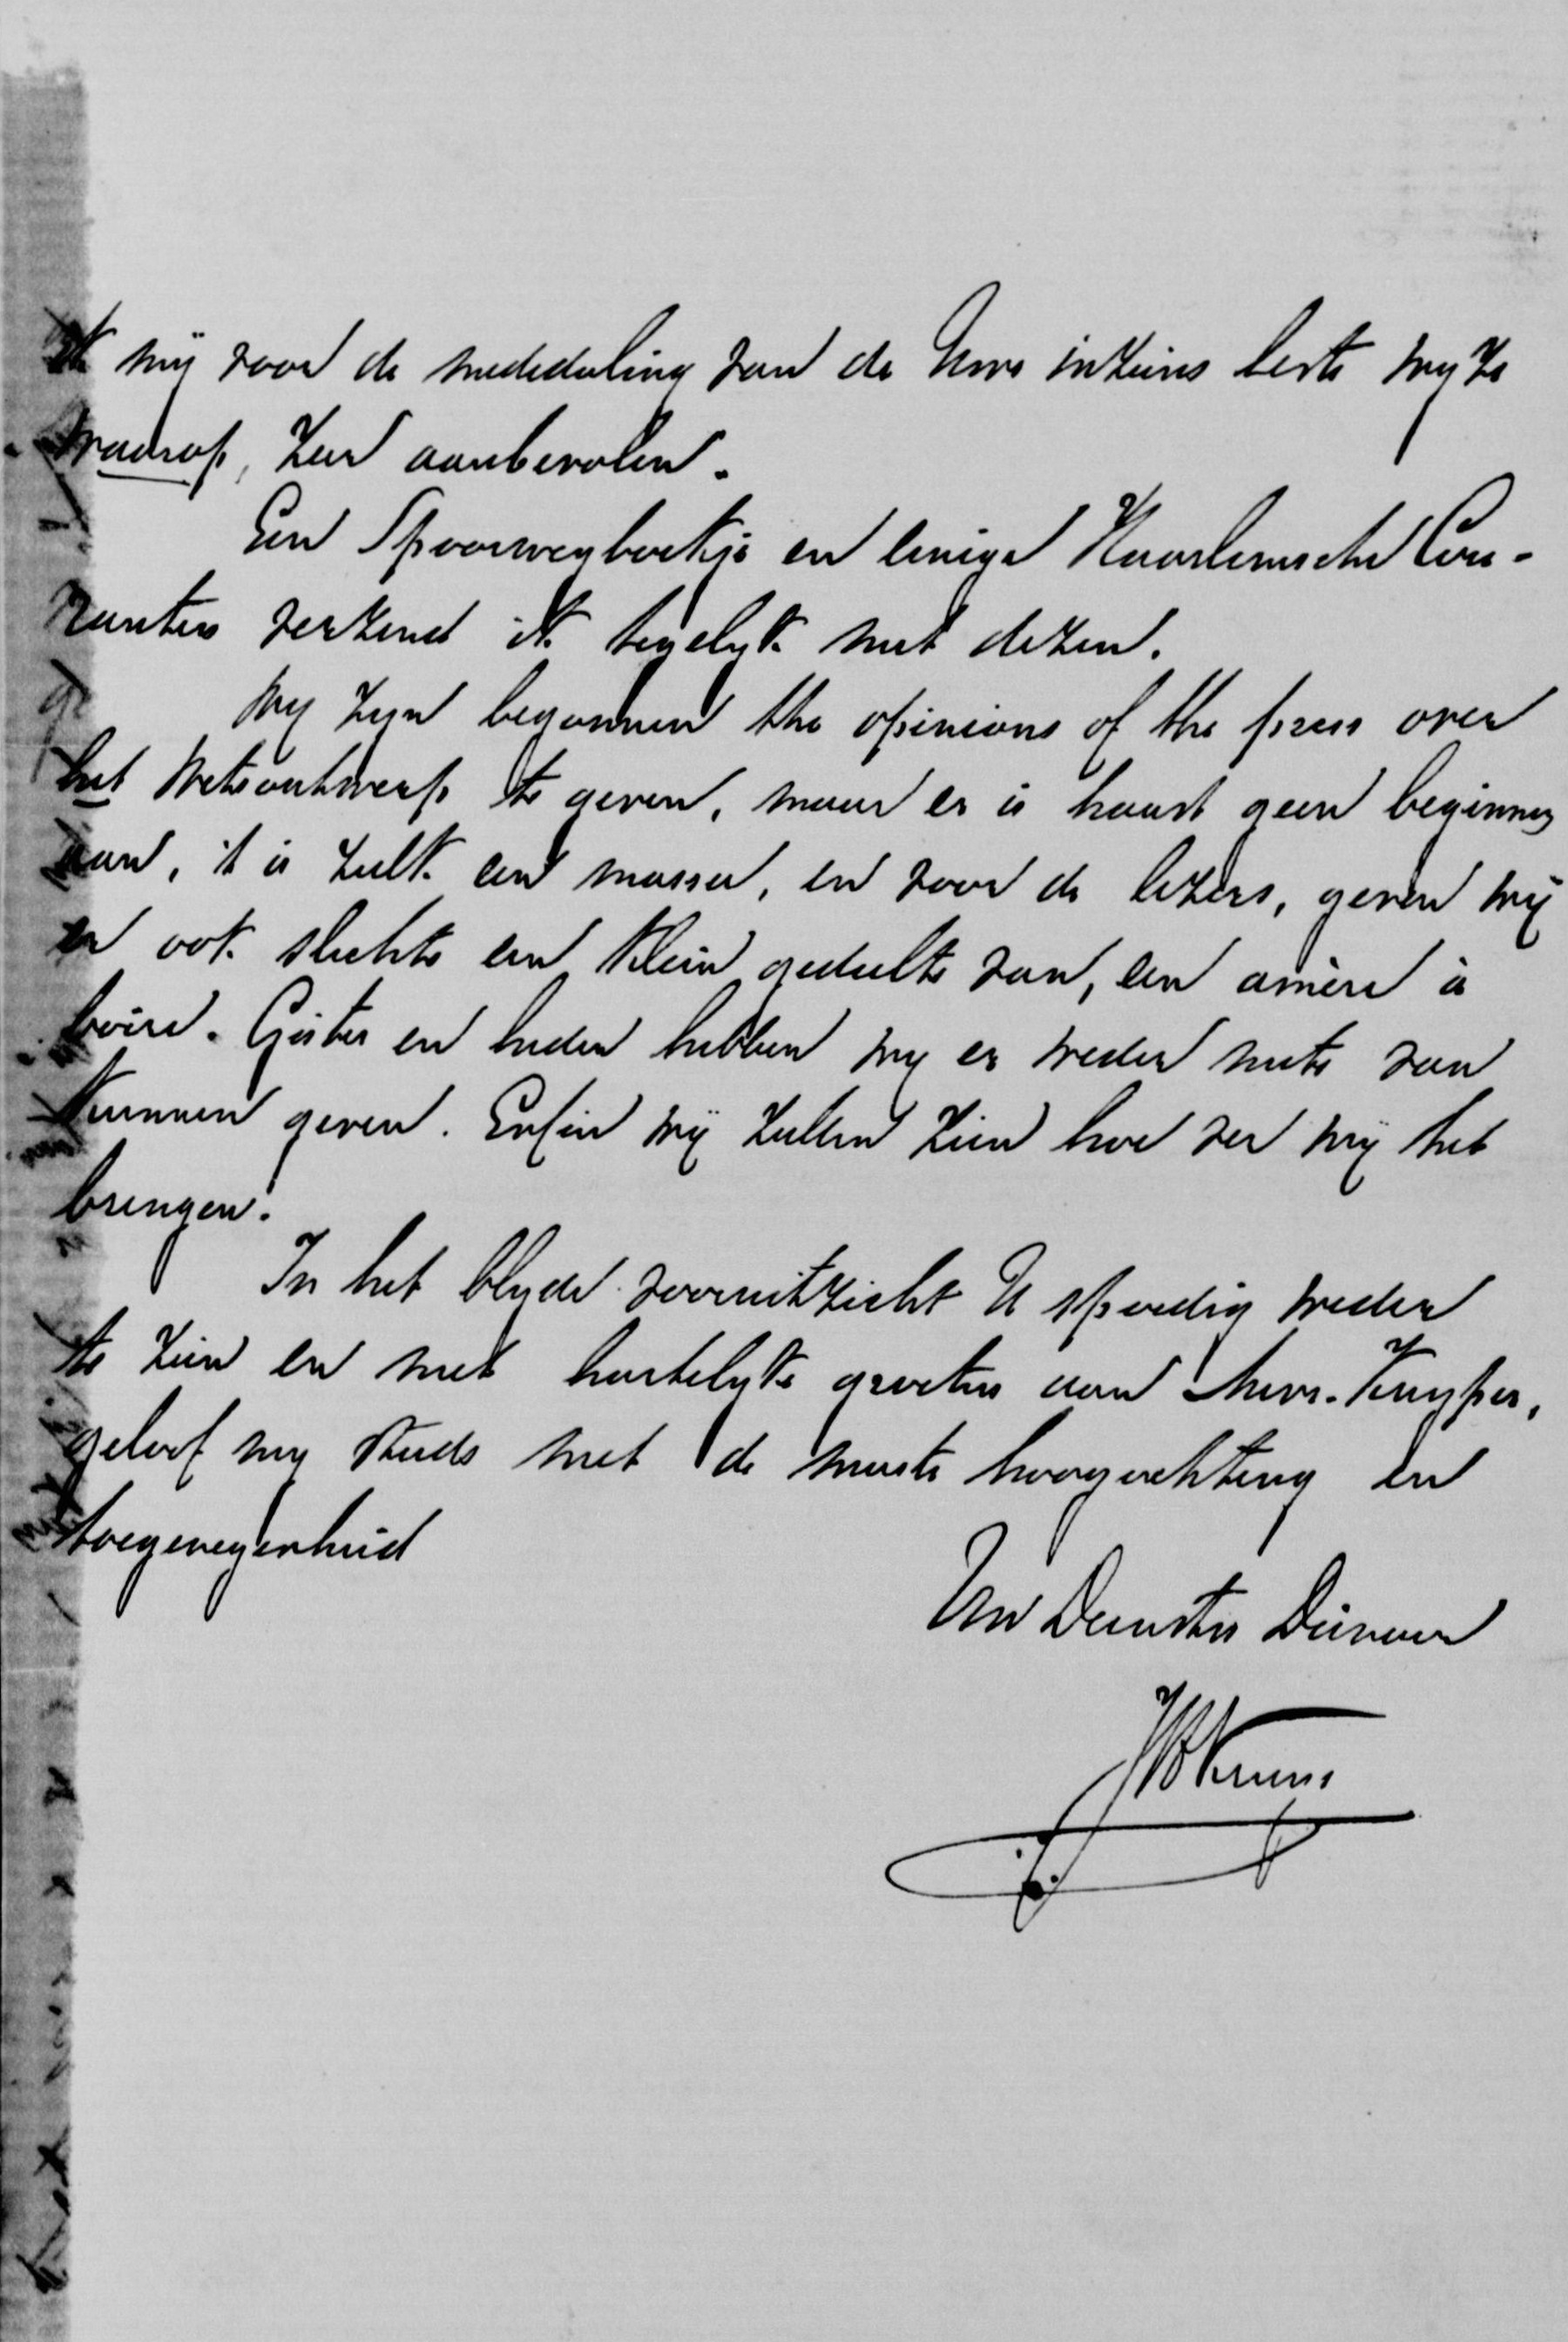 ik mij voor de mededeeling van de Uwe inziens beste wyze
waarop, zeer aanbevolen.
Een Spoorwegboekje en eenige Haarlemsche Cou-
ranten verzend ik tegelyk met dezen.
Wy zyn begonnen the opinions of the press over
het Wetsontwerp te geven, maar er is haast geen beginnen
aan, 't is zulk een massa, en voor de lezers, geven wij
er ook slechts een klein gedeelte van, een amère à
boire. Gister en heden hebben wy er weder niets van
kunnen geven. Enfin wij zullen zien hoe ver wij het
brengen.
In het blyde vooruitzicht U spoedig weder
te zien en met hartelyke groeten aan Mevr. Kuyper,
geloof my steeds met de meeste hoogachting en
toegenegenheid
Uw Dienstw Dienaar